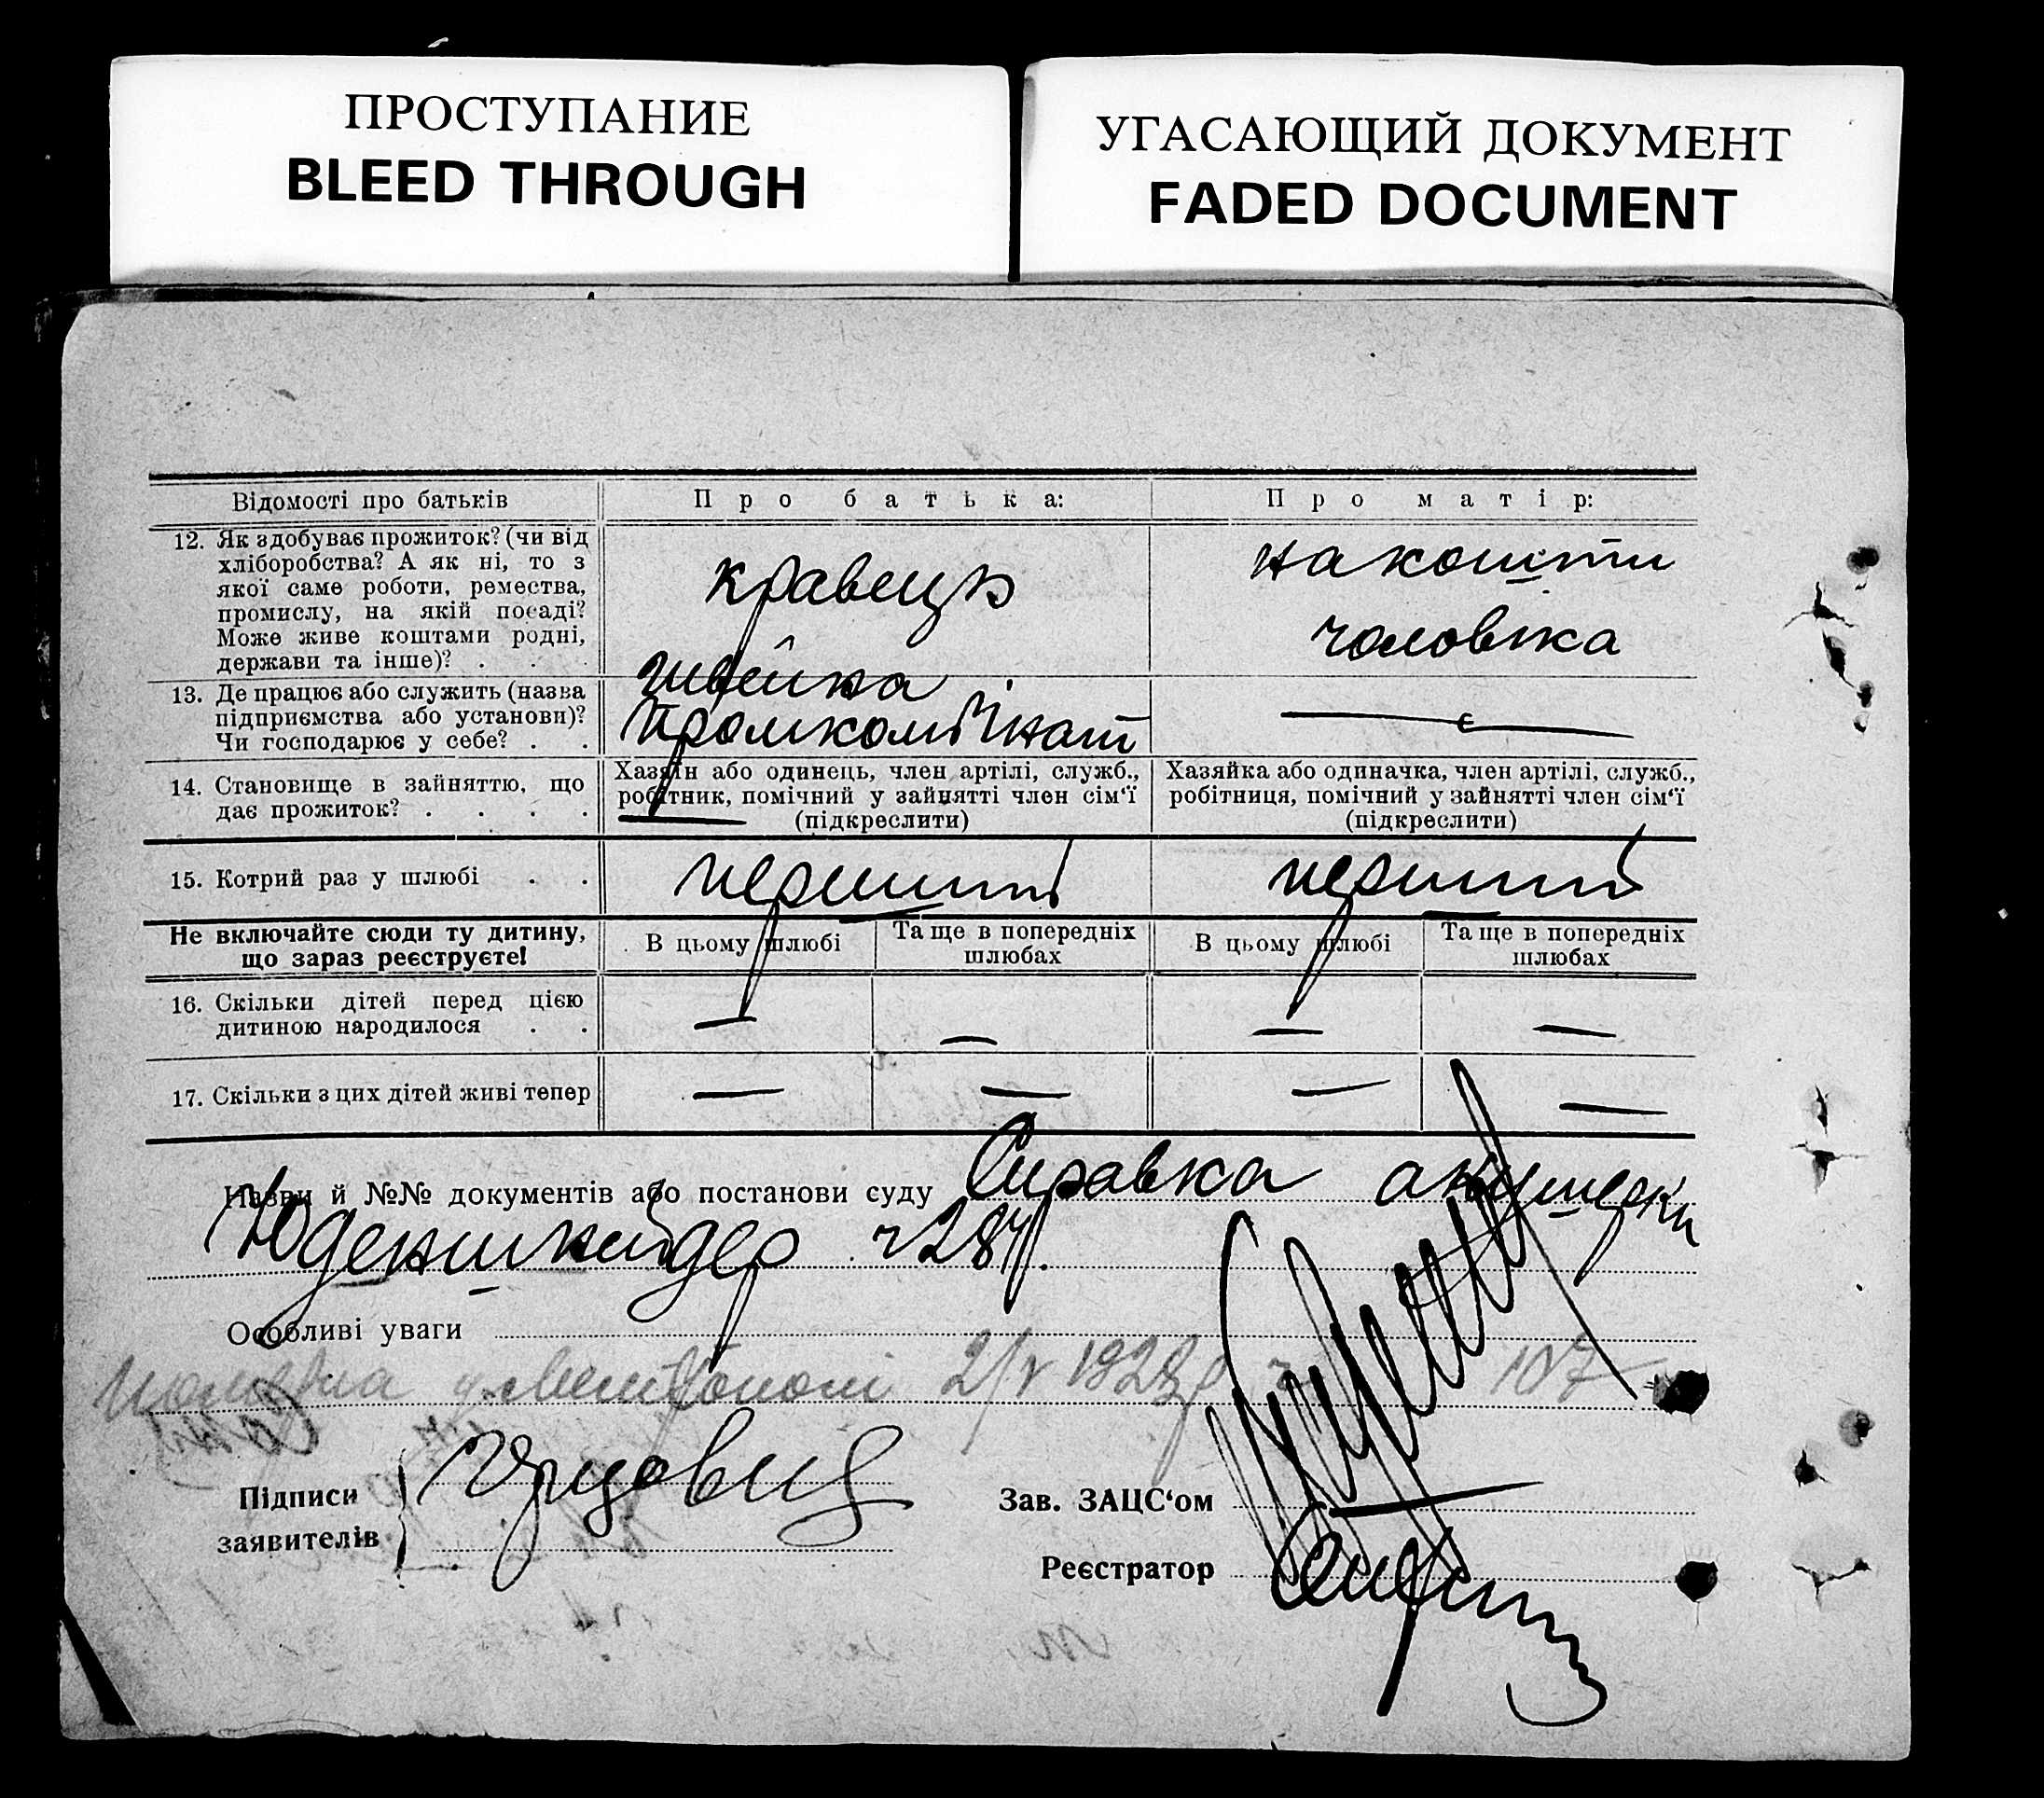 ПРОСТУПАНИЕ
BLEED THROUGH
УГАСАЮЩИЙ ДОКУМЕНТ
FADED DOCUMENT
Відомості про батьків
Про батька:
Про матір:
12. Як здобуває прожиток? (чи від
хліборобства? А як ні, то з
якої саме роботи, ремества,
промислу, на якій посаді?
Може живе коштами родні,
держави та інше)? . . .
кравець
на кошти
чоловіка
13. Де працює або служить (назва
підприємства або установи)?
Чи господарює у себе? . .
швейна
Промкомбінат
14. Становище в зайняттю, що
дає прожиток? . . . .
Хазяїн або одинець, член артілі, служб.,
робітник, помічний у зайнятті член сім‘ї
(підкреслити)
Хазяйка або одиначка, член артілі, служб.,
робітниця, помічний у зайнятті член сім‘ї
(підкреслити)
15. Котрий раз у шлюбі . .
перший
перший
Не включайте сюди ту дитину,
що зараз реєструєте!
В цьому шлюбі
Та ще в попередніх
шлюбах
В цьому шлюбі
Та ще в попередніх
шлюбах
16. Скільки дітей перед цією
дитиною народилося . .
— — — —
17. Скільки з цих дітей живі тепер
— — — —
Назви й №№ документів або постанови суду Справка акушерки
Юденшнайдер
Особливі уваги
107
Підписи
заявителів
Зав. ЗАЦС‘ом
Реєстратор